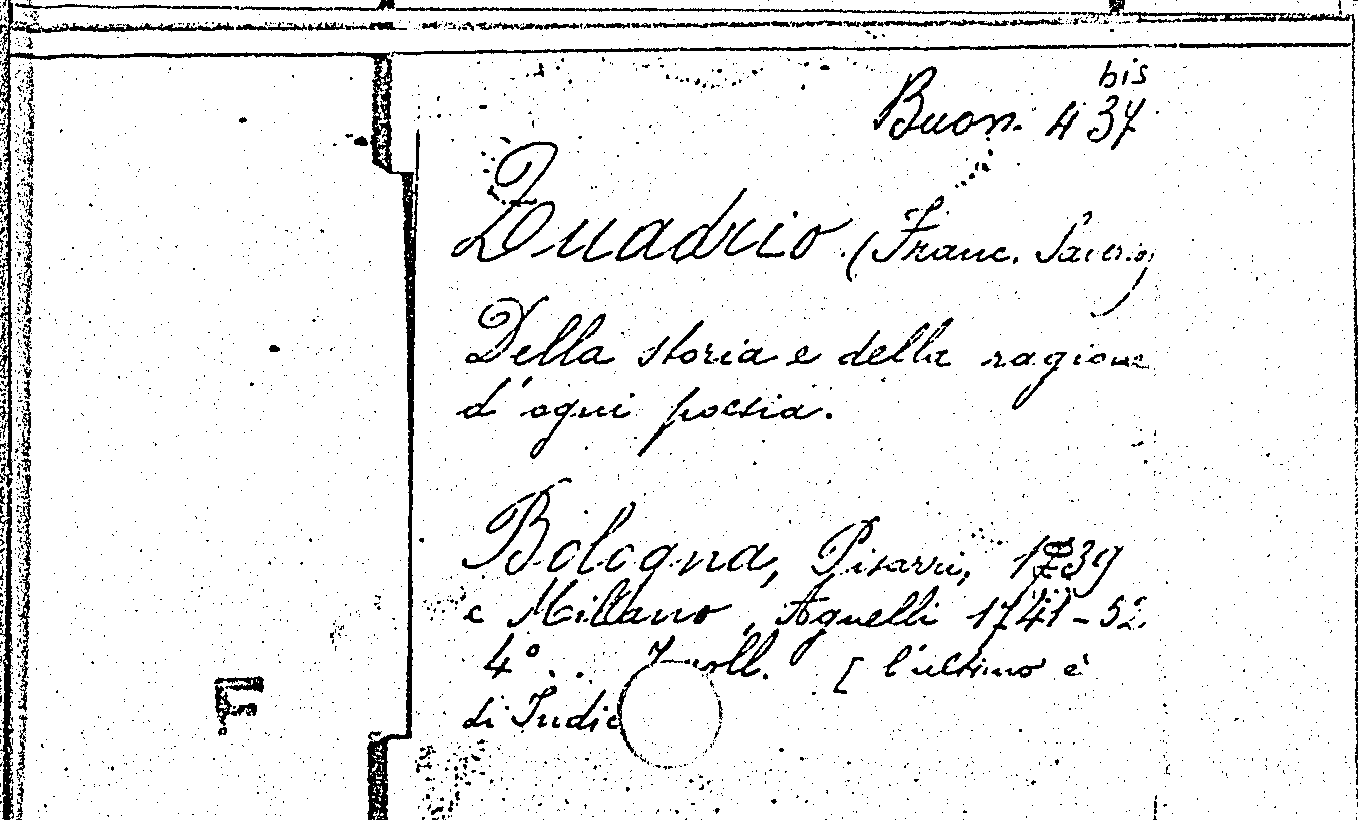 bis
Buon. 437
Quadrio (Franc. Saverio)
Della storia e della ragione
d'ogni poesia.
Bologna, Pisarri, 1739
e Milano, Agnelli 1741-52.
4° . . 7 voll. [ l'ultimo è
di Indic